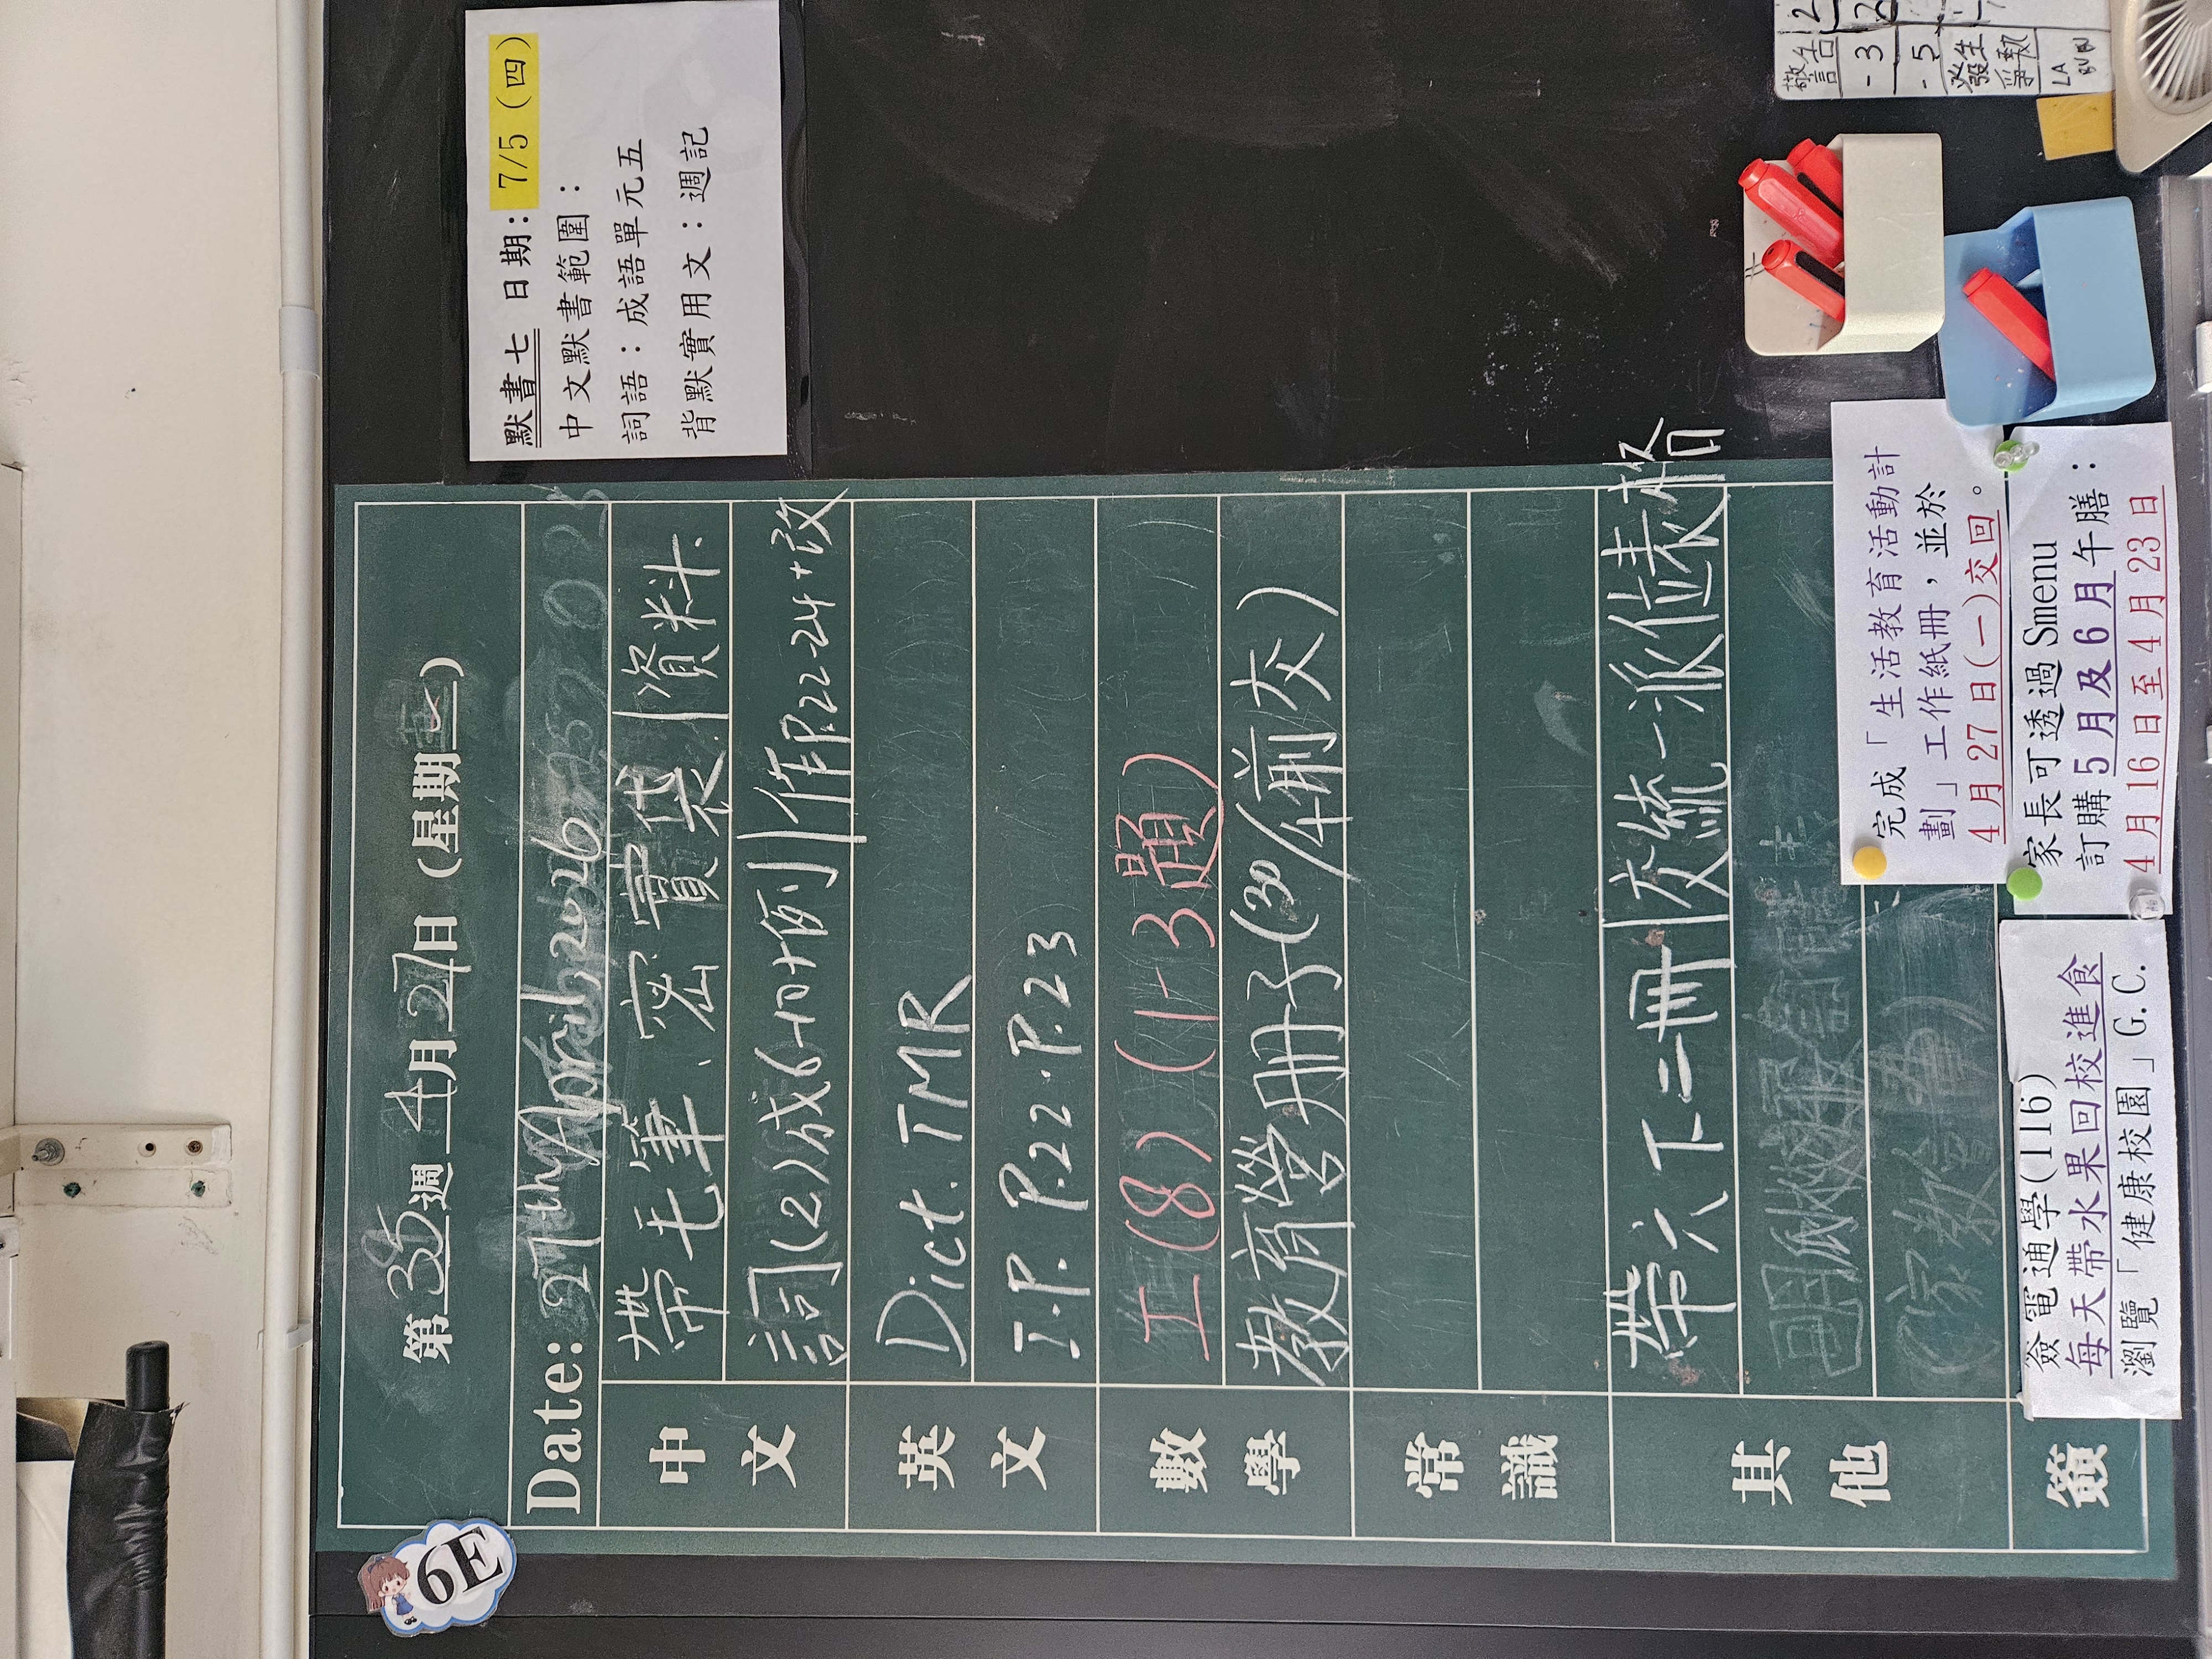 6E
第35週 4月27日 (星期一)
Date: 27th April, 2026
中文
帶毛筆、密實袋、資料
詞(2)成6-10+例作P.22-24+改
英文
Dict. TMR
T.P. P.22-P.23
數學
工(8)(1-3題)
教育營冊子(30/4前交)
常識
其他
帶六下二冊
交統一派位表格
(家教會)
簽
簽電通學(116)
每天帶水果回校進食
瀏覽「健康校園」G.C.
完成「生活教育活動計
劃」工作紙冊,並於
4月27日(一)交回。
家長可透過Smenu
訂購5月及6月午膳:
4月16日至4月23日
默書七 日期: 7/5 (四)
中文默書範圍:
詞語:成語單元五
背默實用文:週記
警告
-3
-5
發生
爭執